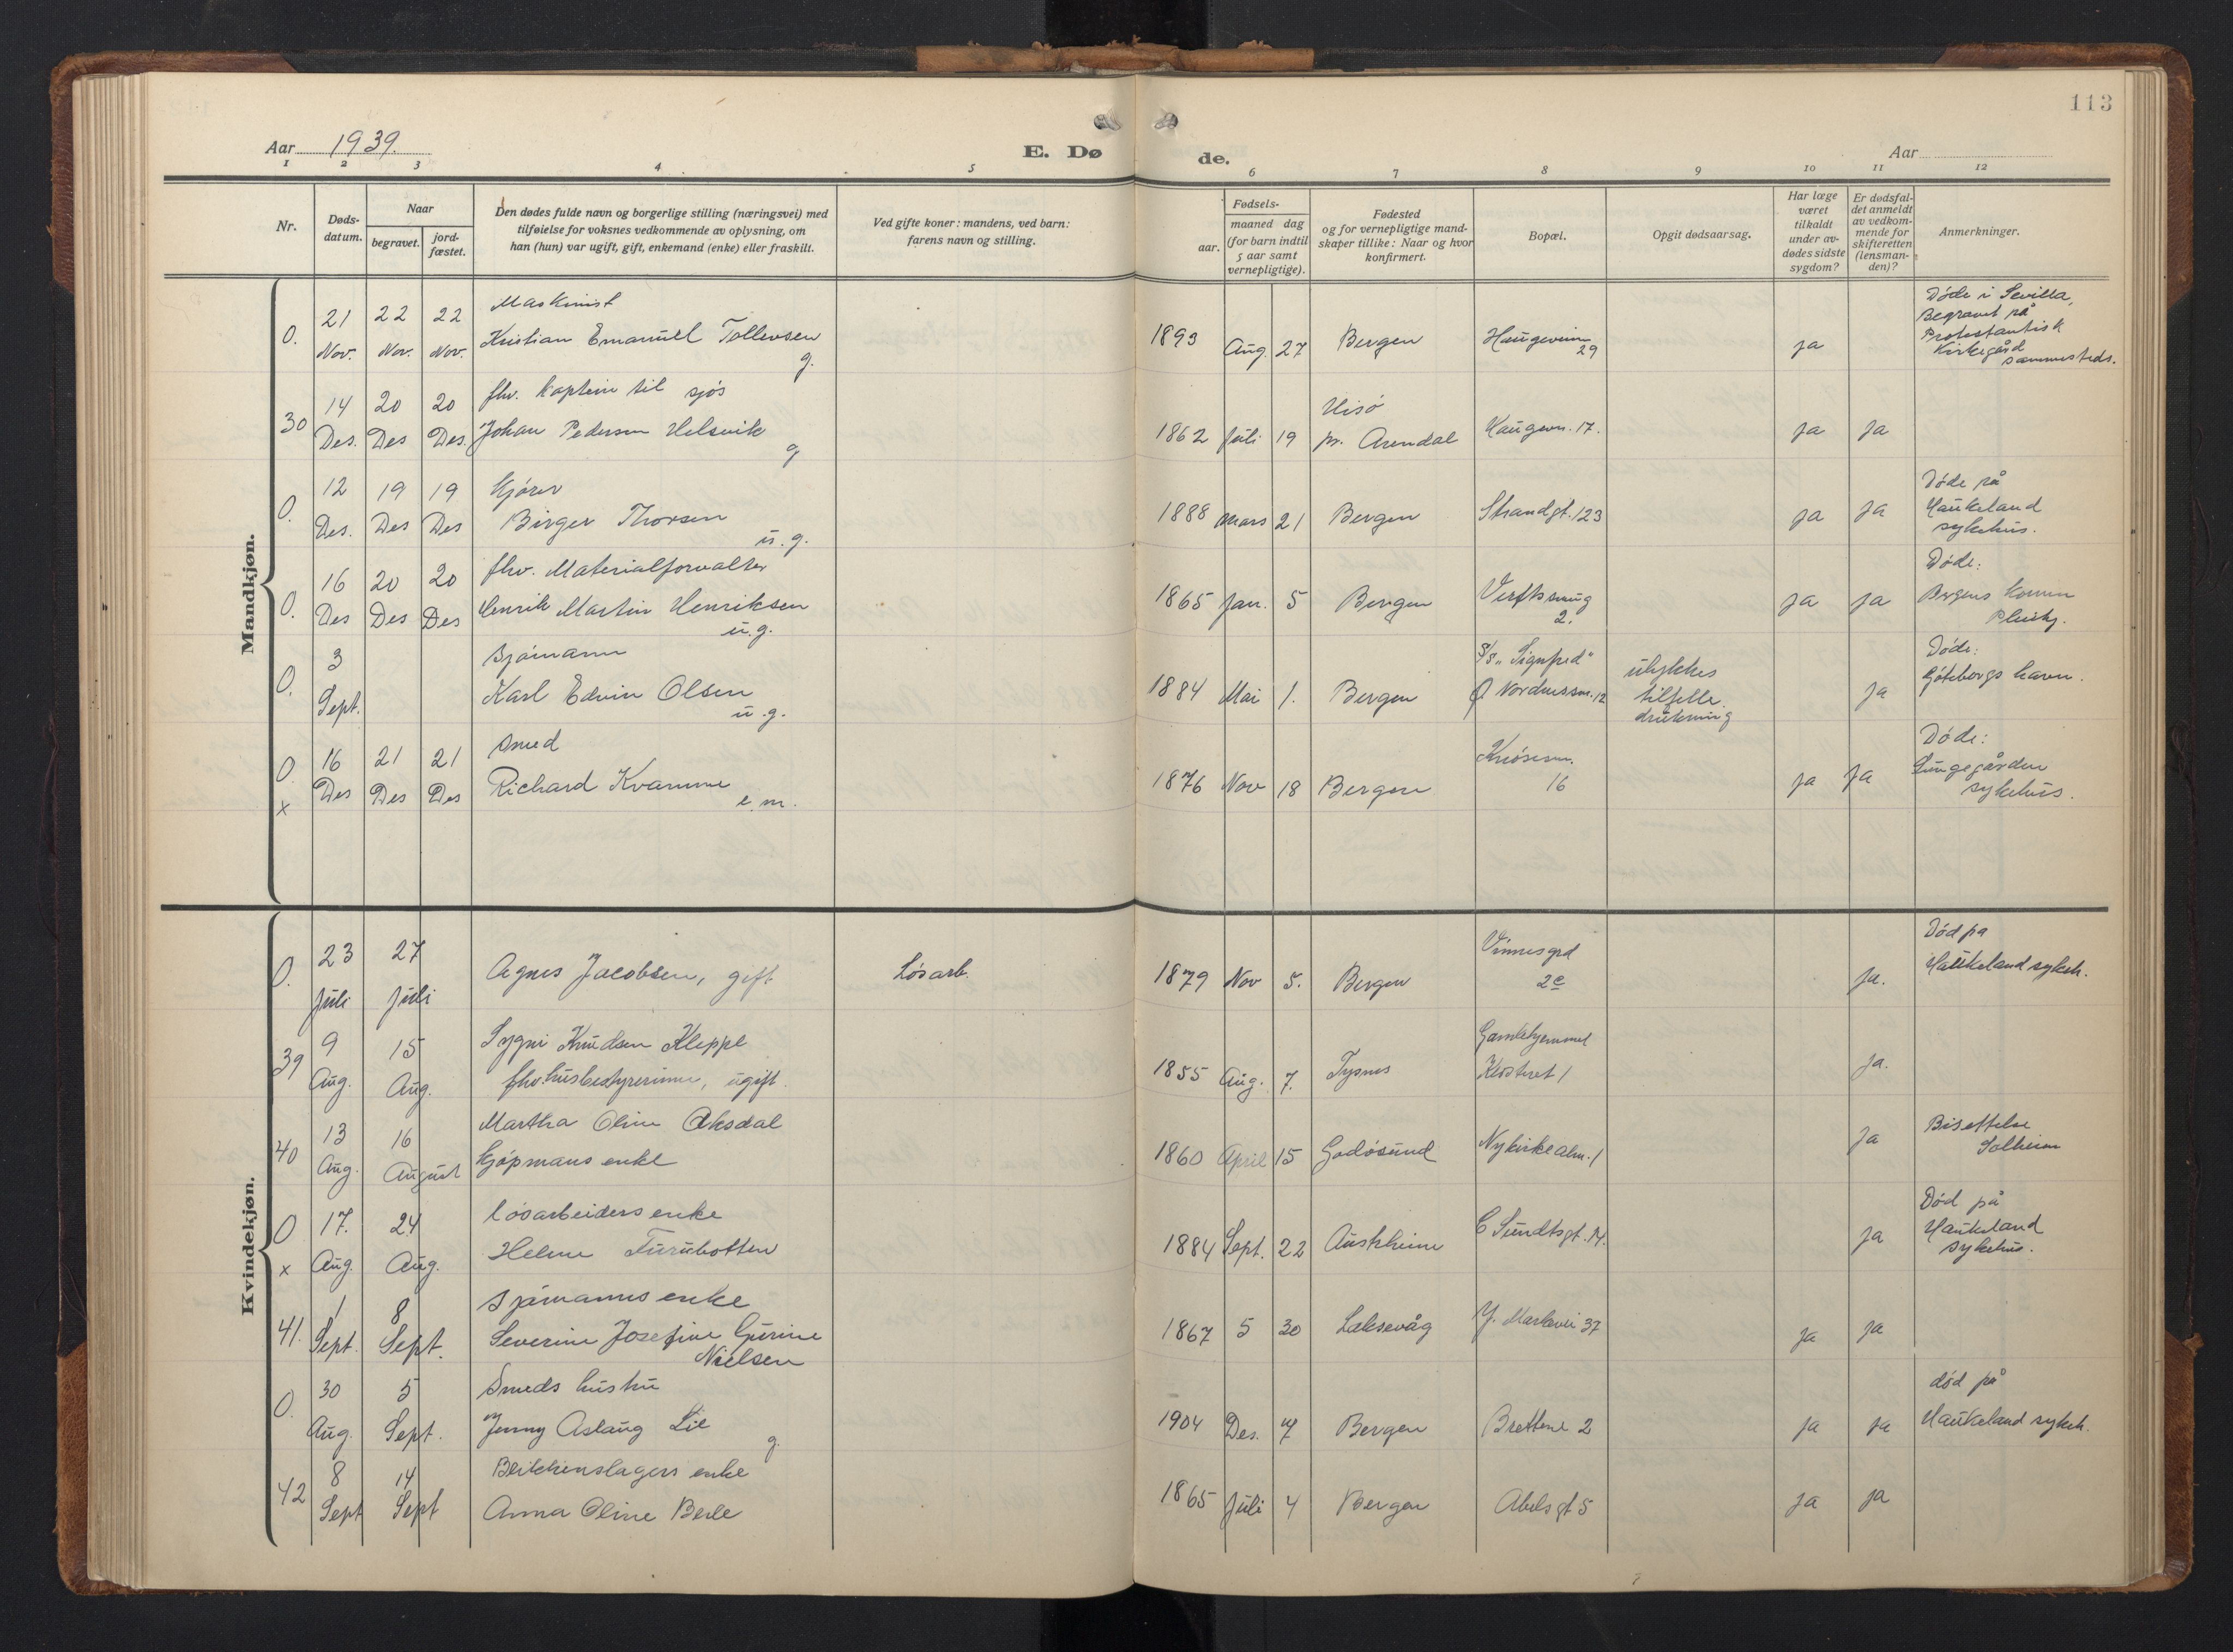 113
Aar 1939.
E. Døde.
Aar
1 2 3 4 5 6 7 8 9 10 11 12
Nr.
Døds-
datum.
Naar
begravet.
jord-
fæstet.
Den dødes fulde navn og borgerlige stilling (næringsvei) med
tilføielse for voksnes vedkommende av oplysning, om
han (hun) var ugift, gift, enkemand (enke) eller fraskilt.
Ved gifte koner: mandens, ved barn:
farens navn og stilling.
Fødsels-
aar.
maaned dag
(for barn indtil
5 aar samt
vernepligtige).
Fødested
og for vernepligtige mand-
skaper tillike: Naar og hvor
konfirmert.
Bopæl.
Opgit dødsaarsag.
Har læge
været
tilkaldt
under av-
dødes sidste
sygdom?
Er dødsfal-
det anmeldt
av vedkom-
mende for
skifteretten
(lensman-
den)?
Anmerkninger.
Mandkjøn.
0. 21 Nov. 22 Nov. 22 Nov.
Maskinist
Kristian Emanuel Tollevsen
g.
1893 Aug. 27 Bergen Haugeveien 29 ja
Døde i Sevilla,
Begravet på
Protestantisk
Kirkegård
sammesteds.
30 14 Des. 20 Des 20 Des.
fhv. Kaptein til sjøs
Johan Pedersen Helsvik
g
1862 Juli 19 Hisö pr. Arendal Haugevn. 17. ja ja
0. 12 Des. 19 Des 19 Des
Kjører
Birger Thorsen
u.g.
1888 Mars 21 Bergen Strandgt. 123 ja ja
Døde på
Haukeland
sykehus.
0. 16 Des 20 Des 20 Des
fhv. Materialforvalter
Henrik Martin Henriksen
u.g.
1865 Jan. 5 Bergen Verftssmug 2. ja ja
Døde:
Bergens komm
Pleiehj.
0. 3 Sept.
Sjømann
Karl Edvin Olsen
u.g.
1884 Mai 1. Bergen
S/s "Signfred"
Nordnessm. 12
ulykkes
tilfelle.
drukning
ja
Døde:
Göteborgs havn.
0 x 16 Des 21 Des 21 Des
Smed
Richard Kvamme
e.m.
1876 Nov 18 Bergen Knøsesm. 16 ja ja
Døde:
Lungegården
sykehus.
Kvindekjøn.
0. 23 Juli 27 Juli
Agnes Jacobsen, gift
Løsarb.
1879 Nov 5. Bergen Vinnesgrd 2c ja.
Død pa
Haukeland sykeh.
39 9 Aug. 15 Aug.
Sygni Knudsen Kleppe
fhv. husbestyrerinne, ugift.
1855 Aug. 7. Tysnes
Gamlehjemmet
Klosteret 1
ja.
40 13 Aug. 16 August
Martha Oline Aksdal
Kjøpmans enke
1860 April 15 Godøsund Nykirkealm. 1 ja
Bisettelse
Solheim
0 x 17. Aug. 24 Aug.
løsarbeiders enke
Helene Furubotten
1884 Sept. 22 Austrheim C Sundtsgt. 14. ja
Død på
Haukeland
sykehus.
41. 1 Sept. 8 Sept.
Sjømanns enke
Severine Josefine Gurine
Nielsen
1867 5 30 Laksevåg Y. Markevei 37 ja ja
0. 30 Aug. 5 Sept.
Smeds hustru
Jenny Aslaug Lie
g.
1904 Des. 7 Bergen Brettene 2 ja ja
død på
Haukeland sykeh.
42 8 Sept 14 Sept
Blikkenslagers enke
Anna Oline Berle
1865 Juli 4 Bergen Abels gt 5 ja ja